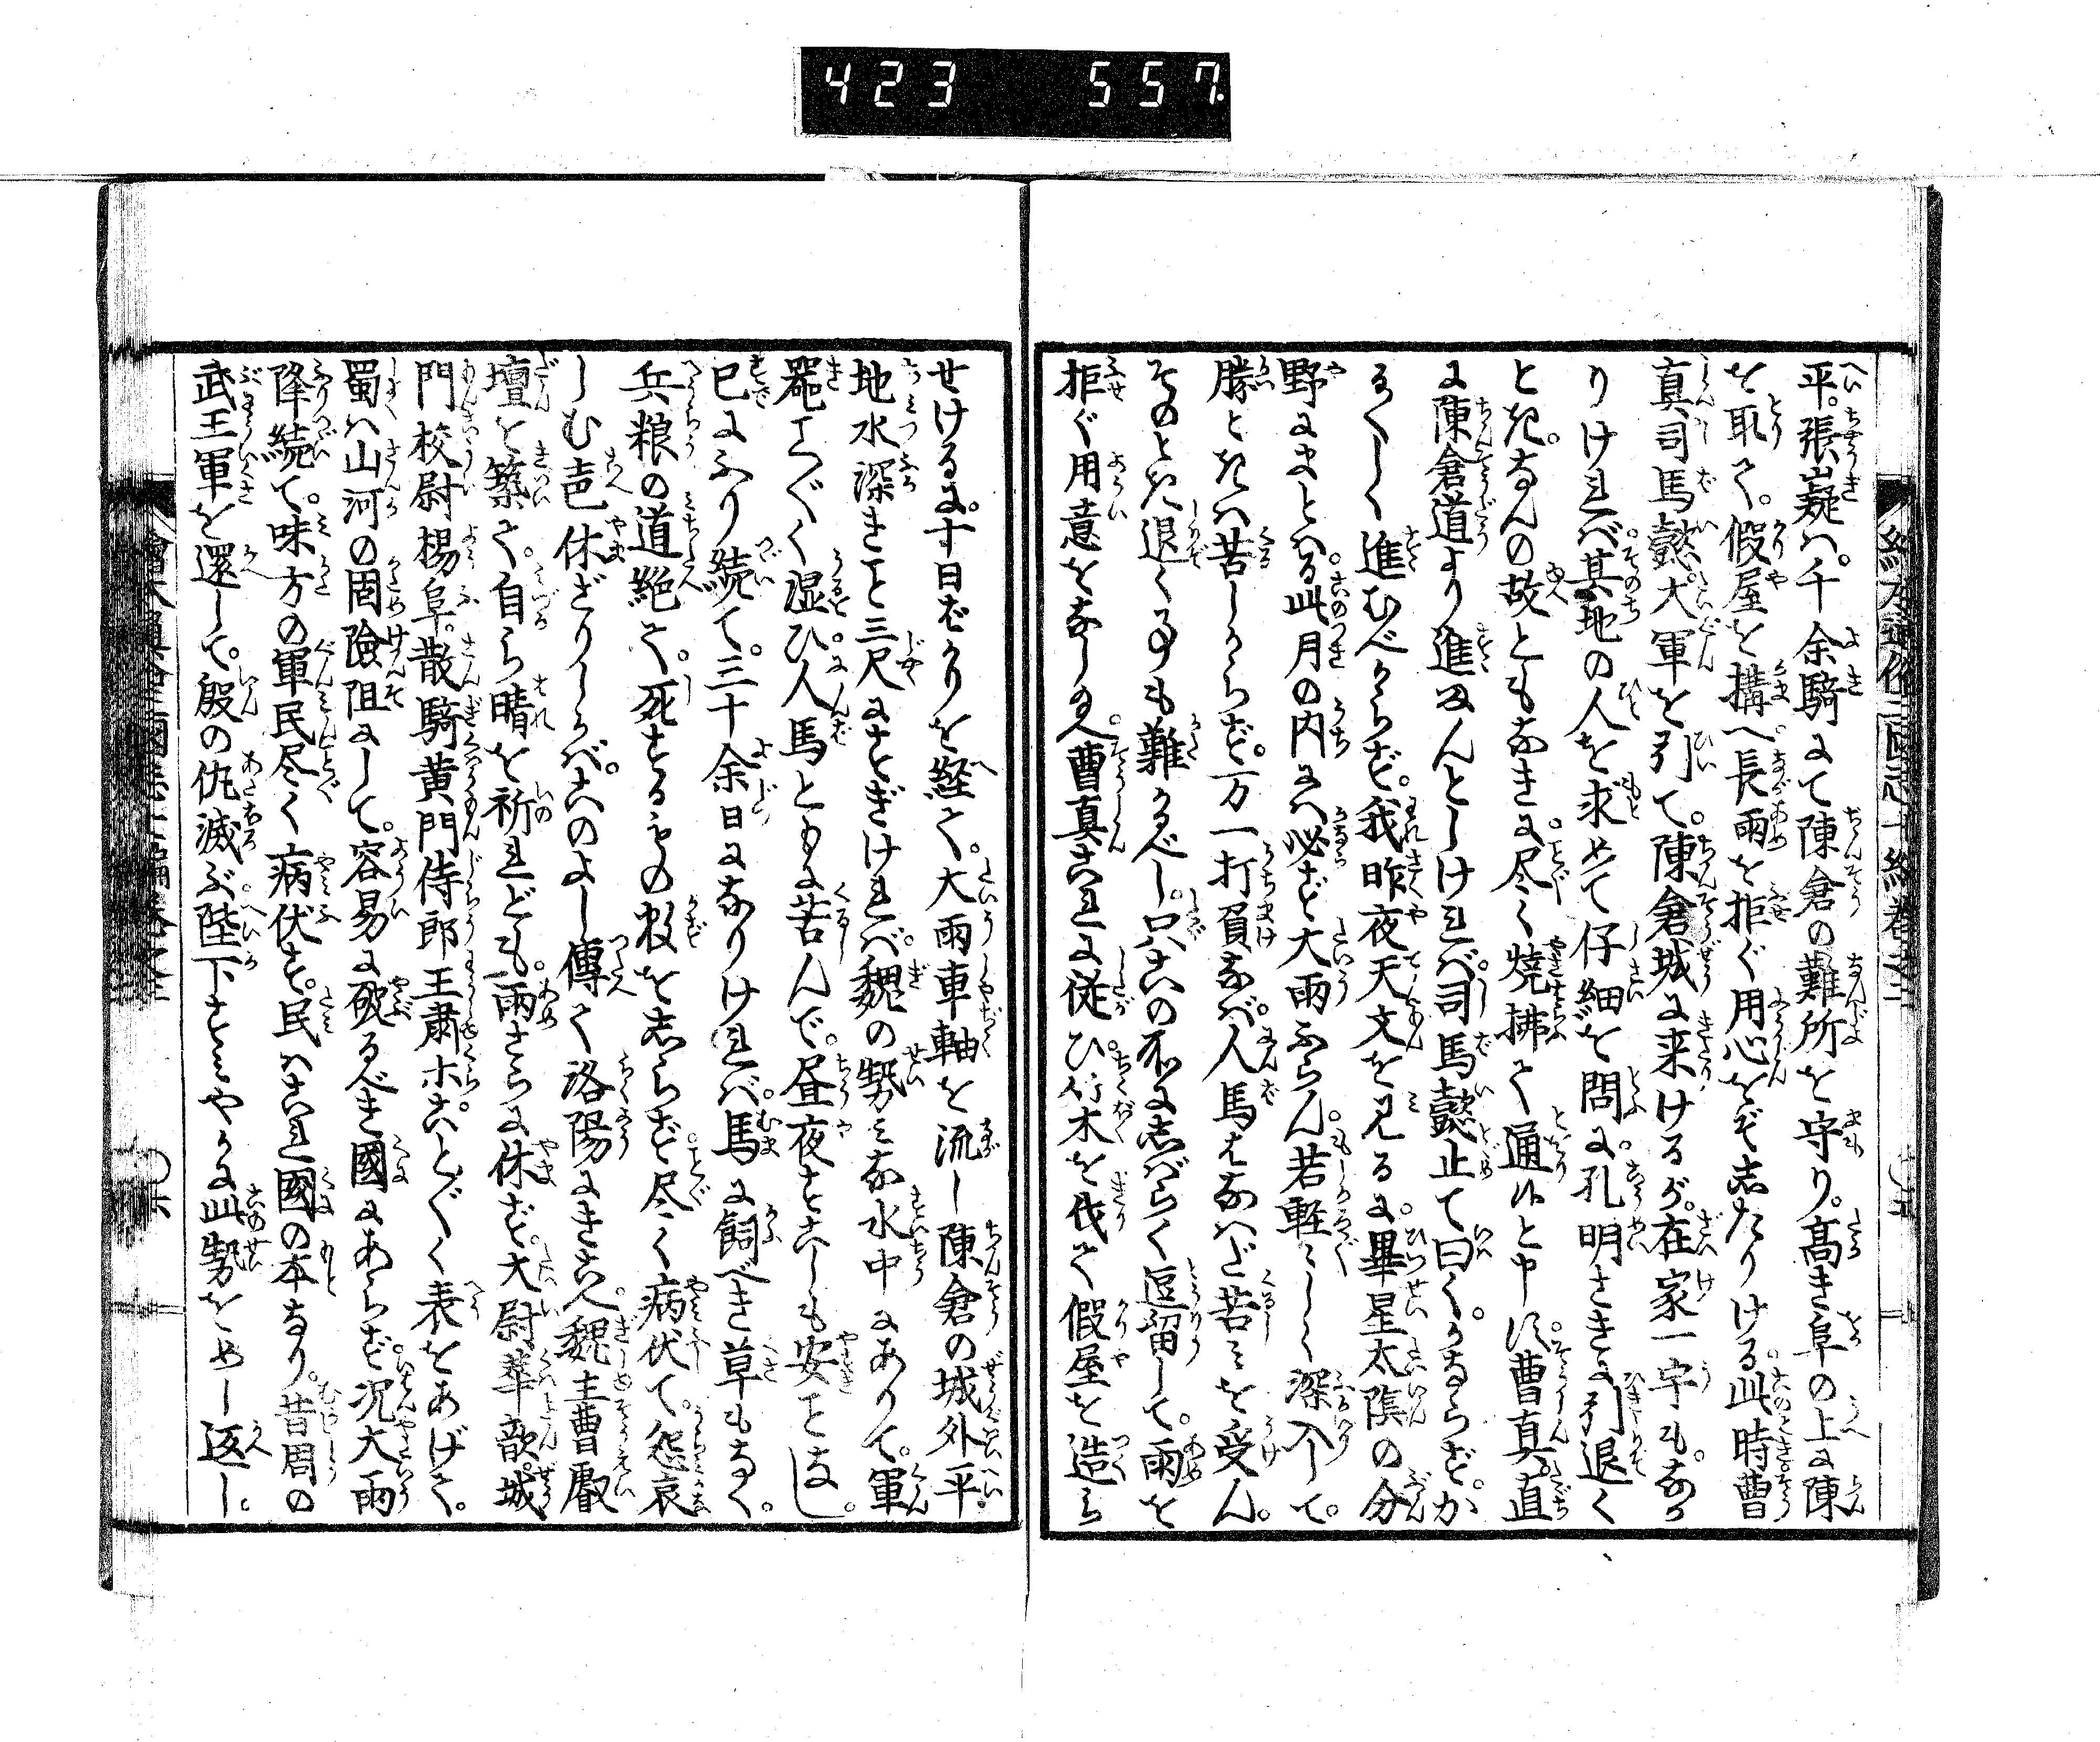 423 557
平。張嶷ハ。千余騎にて陳倉の難所を守り。髙き阜の上に陳
を取て。假屋を搆へ長雨を拒ぐ用心をぞしたりける此時曹
真司馬懿。大軍を引て。陳倉城に来けるが。在家一宇も。なか
りけれバ其地の人を求めて仔細を問に。孔明さきに引退く
とき。なんの故ともなきに。尽く焼拂て通候と申に。曹真。直
に陳倉道より進まんとしけれバ。司馬懿止て曰く。かならずか
るくしく進むべからず。我昨夜天文を見るに。畢星太陰の分
野にまとへる。此月の内にハ必ず大雨ふらん。若軽〻しく深入して。
勝ときハ苦しからず。万一打負なバ。人馬もなハど苦ミを受ん。
そのとき退く事も難かるべし。只此の所にしばらく逗留して。雨を
拒ぐ用意をなし給へ。曹真これに従ひ。竹木を伐て假屋を造ら
せけるに。十日ばかりを経て。大雨車軸を流し陳倉の城外平
地水深きこと三尺にすぎけれバ。魏の勢ミな水中にありて。軍
器こと〴〵く湿ひ。人馬ともに苦んで。昼夜すこしも安ことなし。
已にふり続て。三十余日になりけれバ。馬に飼べき草もなく。
兵粮の道絶て。死するもの数をしらず。尽く病伏て。怨哀
しむ声休ざりしかバ。此のよし傳て洛陽にきこへ。魏主曹叡
壇を築て。自ら晴を祈れども。雨さらに休ず。大尉華歆。城
門校尉楊阜。散騎黄門侍郎王肅ホ。こと〴〵く表をあげて。
蜀ハ山河の固險阻にして。容易に破るべき國にあらず。况大雨
降続て。味方の軍民尽く病伏す。民ハこれ國の本なり。昔周の
武王軍を還して。殷の仇滅ぶ。陛下すミやかに此勢をめし返し。